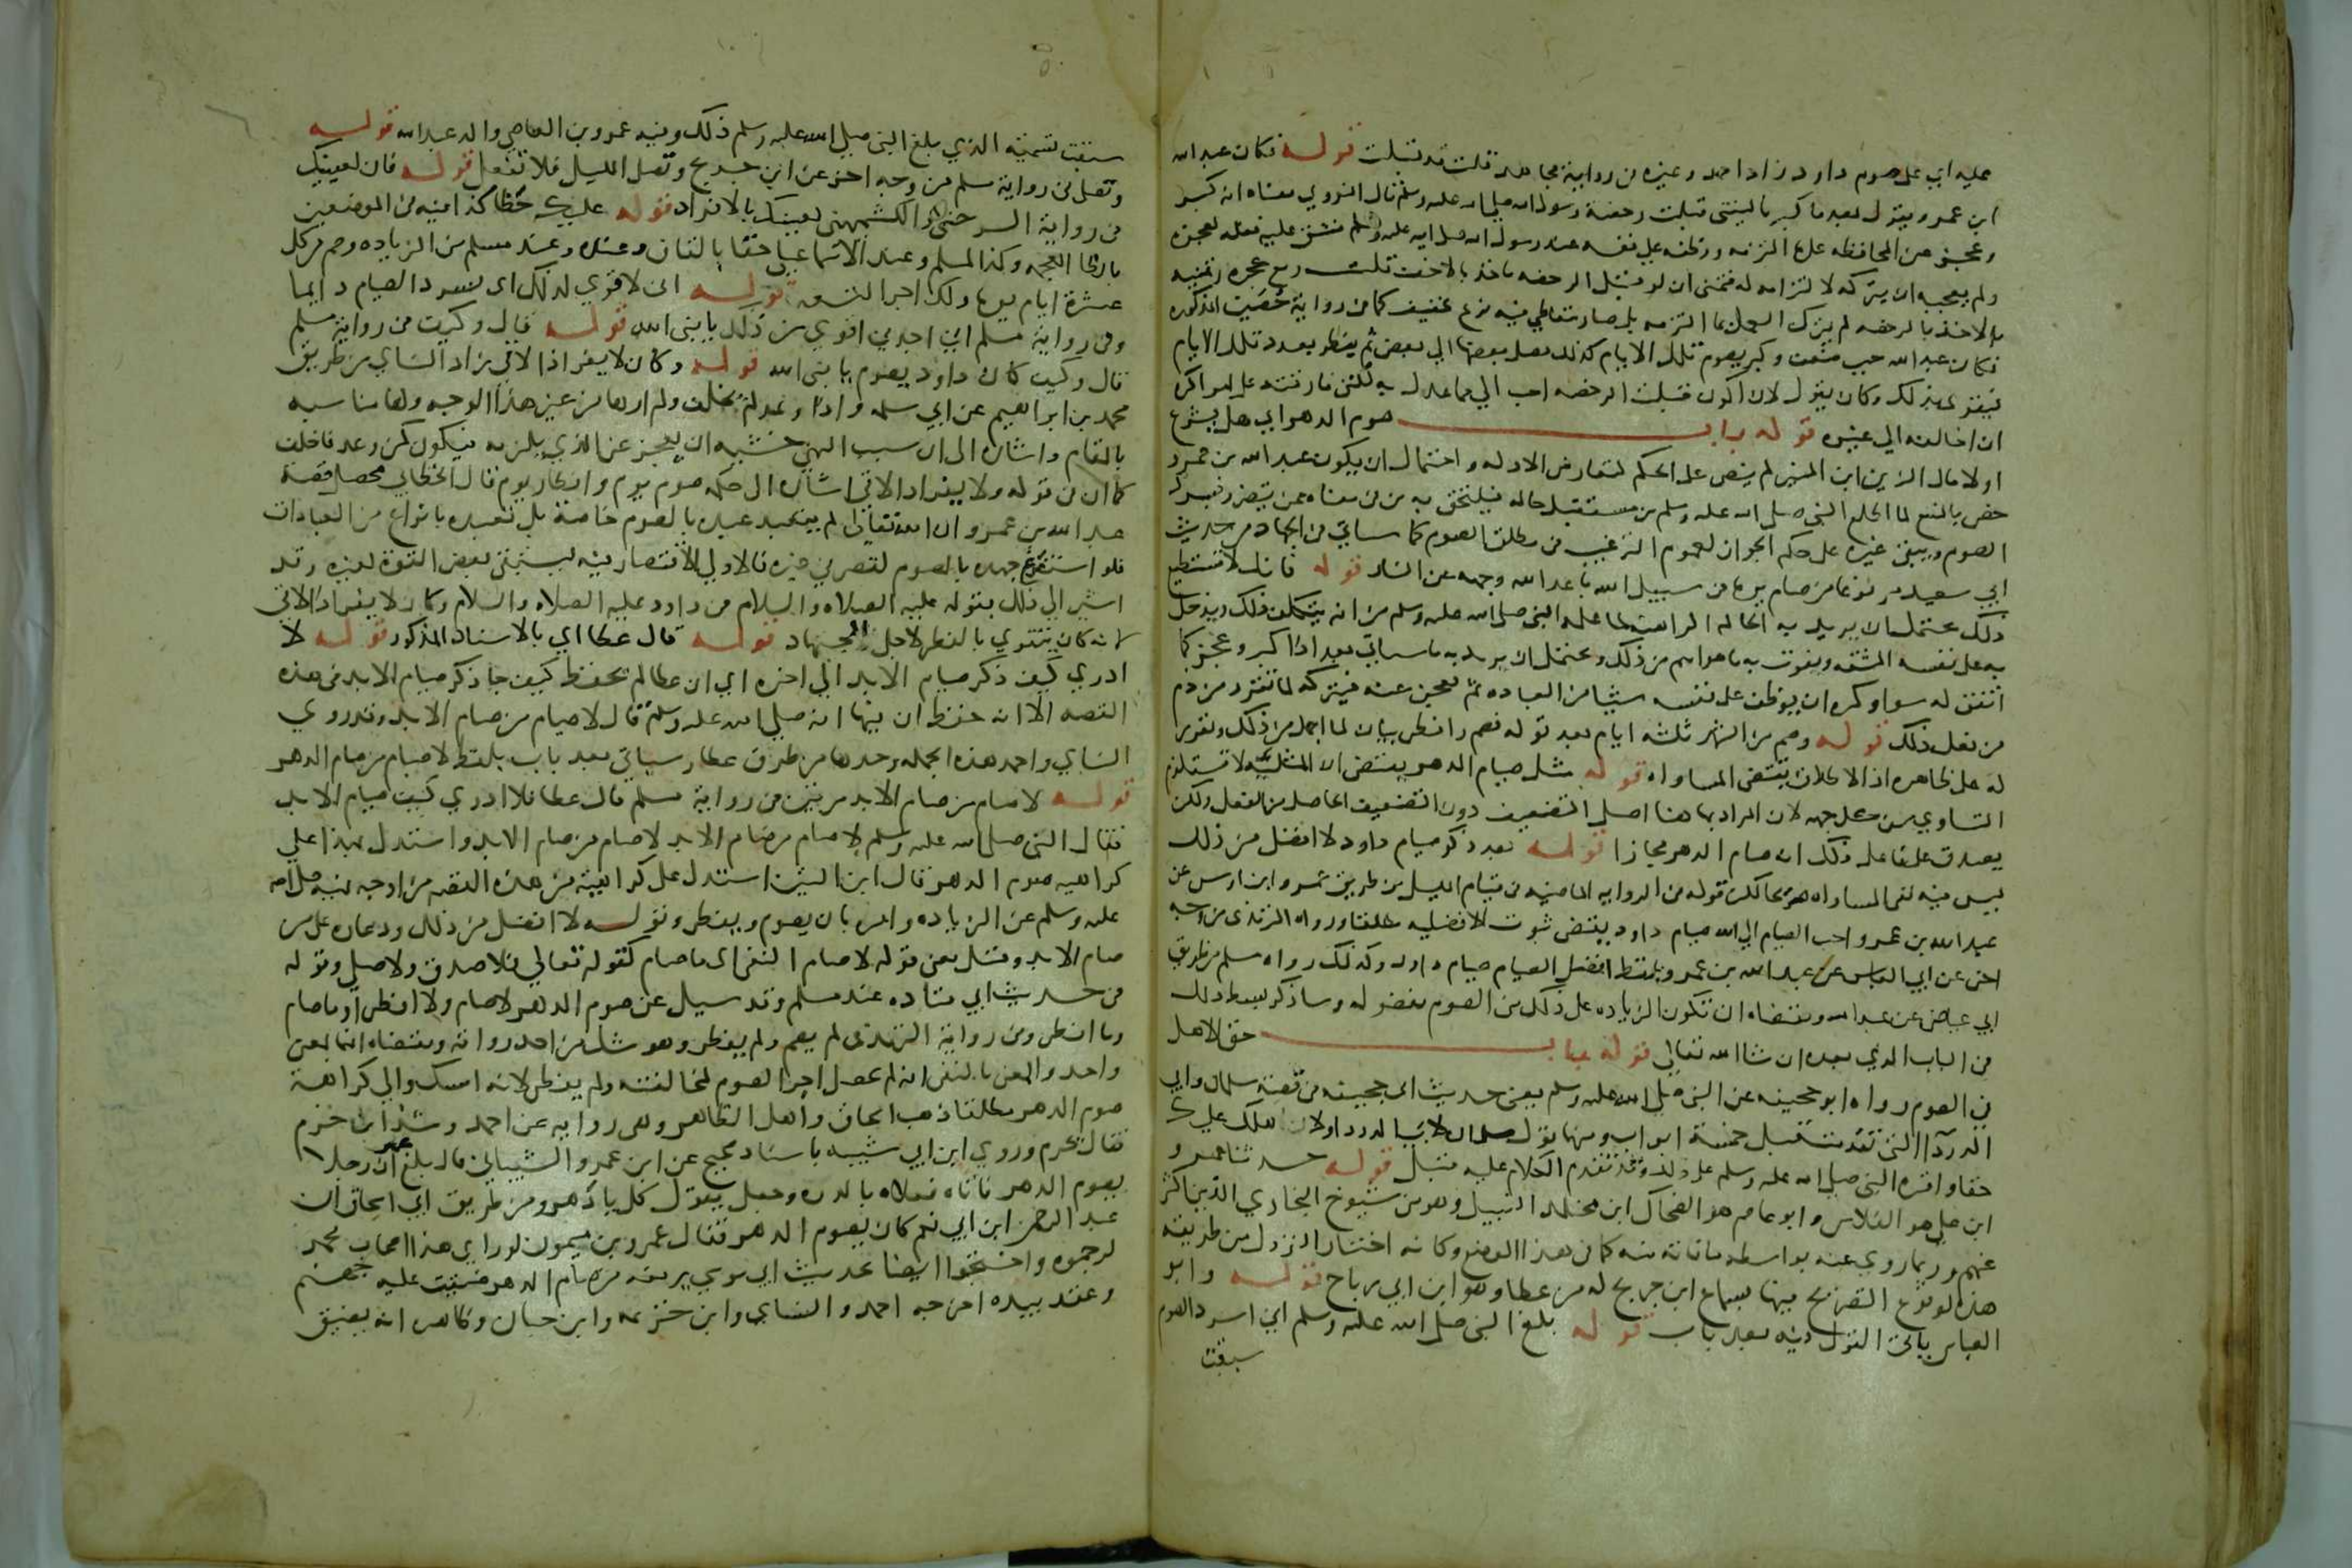 عليه اي على صوم داود زاد احمد وغيره من رواية مجاهد قلت قد قبلت قوله فكان عبد الله
ابن عمرو يقول بعد ما كبر يا ليتني قبلت رخصة رسول الله صلى الله عليه وسلم قال النووي معناه انه كبر
وعجز عن المحافظه على ما التزمه ووظفه على نفسه عند رسول الله صلى الله عليه وسلم فشق عليه فعله لعجزه
ولم يعجبه ان يتركه لالتزامه له فتمنى ان لو قبل الرخصه فاخذ بالاخف قلت ومع عجزه وتمنيه
الاخذ بالرخصه لم يترك العمل بما التزمه بل صار يتعاطى فيه نوع تخفيف كما في رواية حصين المذكوره
فكان عبد الله حين ضعف وكبر يصوم تلك الايام كذلك يصل بعضها الى بعض ثم يفطر بعدد تلك الايام
فيقوى بذلك وكان يقول لان اكون قبلت الرخصه احب الي مما عدل به لكنني فارقته على امر اكره
ان اخالفه الى غيره قوله باب صوم الدهر اي هل يشرع
اولا قال الزين ابن المنير لم ينص على الحكم لتعارض الادله واحتمال ان يكون عبد الله بن عمرو
خص بالمنع لما اطلع النبي صلى الله عليه وسلم من مستقبل حاله فيلتحق به من في معناه ممن يتضرر بسرد
الصوم ويبقى غيره على حكم الجواز لعموم الترغيب في مطلق الصوم كما سياتي في الجهاد من حديث
ابي سعيد مرفوعا من صام يوما في سبيل الله باعد الله وجهه عن النار قوله فانك لا تستطيع
ذلك يحتمل ان يريد به الحاله الراهنه لما علمه النبي صلى الله عليه وسلم من انه يتكلف ذلك ويدخل
به على نفسه المشقه ويفوت به ما هو اهم من ذلك ويحتمل ان يريد به ما سياتي بعد اذا كبر وعجز كما
اتفق له سوا وكره ان يوظف على نفسه شيئا من العباده ثم يعجز عنه فيتركه لما تقرر من ذم
من فعل ذلك قوله وصم من الشهر ثلثه ايام بعد قوله فصم وافطر بيان لما اجمل من ذلك وتقرير
له على ظاهره اذ الاطلاق يقتضي المساواه قوله مثل صيام الدهر يقتضي ان المثليه لا تستلزم
التساوي من كل جهه لان المراد بها هنا اصل التضعيف دون التضعيف الحاصل من الفعل ولكن
يصدق على فاعل ذلك انه صام الدهر مجازا قوله بعد ذكر صيام داود لا افضل من ذلك
ليس فيه نفي المساواه صريحا لكن قوله في الروايه الماضيه في قيام الليل من طريق عمرو ابن اوس عن
عبد الله بن عمرو احب الصيام الى الله صيام داود يقتضي ثبوت الافضليه مطلقا ورواه الترمذي من وجه
اخر عن ابي العباس عن عبد الله بن عمرو بلفظ افضل الصيام صيام داود وكذلك رواه مسلم من طريق
ابي عياض عن عبد الله ومقتضاه ان تكون الزياده على ذلك من الصوم مفضوله وساذكر بسط ذلك
في الباب الذي بعده ان شا الله تعالى قوله باب حق الاهل
في الصوم رواه ابو جحيفه عن النبي صلى الله عليه وسلم يعني حديث ابي جحيفه في قصة سلمان وابي
الدردا التي تقدمت قبل خمسة ابواب وفيها قول سلمان لابي الدردا وان لاهلك عليك
حقا واقره النبي صلى الله عليه وسلم على ذلك وقد تقدم الكلام عليه قبل قوله حدثنا عمرو
ابن علي هو الفلاس وابو عاصم هو الضحاك ابن مخلد النبيل وهو من شيوخ البخاري الذين اكثر
عنهم وربما روى عنه بواسطه ما فاته منه كما في هذا الموضع وكانه اختار النزول من طريقه
هذه لوقوع التصريح فيها بسماع ابن جريج له من عطا وهو ابن ابي رباح قوله وابو
العباس ياتي القول فيه بعد باب قوله بلغ النبي صلى الله عليه وسلم اني اسرد الصوم
سبقت
سبقت تسمية الذي بلغ النبي صلى الله عليه وسلم ذلك وفيه عمرو بن العاصي والد عبد الله قوله
وتصلي في رواية مسلم من وجه اخر عن ابن جريج وتصلي الليل فلا تفعل قوله فان لعينيك
في رواية السرخسي والكشميهني لعينك بالافراد قوله عليك حظا كذا فيه في الموضعين
بالظا المعجمه وكذا لمسلم وعند الاسماعيلي حقا بالقاف وعنده وعند مسلم من الزياده وصم من كل
عشرة ايام يوما ولك اجر التسعه قوله اني لاقوى لذلك اي لسرد الصيام دايما
وفي رواية مسلم اني اجدني اقوى من ذلك يا نبي الله قوله قال وكيف في رواية مسلم
قال وكيف كان داود يصوم يا نبي الله قوله وكان لا يفر اذا لاقى زاد النساي من طريق
محمد بن ابراهيم عن ابي سلمه واذا وعد لم يخلف ولم ارها من غير هذا الوجه ولها مناسبه
بالمقام واشاره الى ان سبب النهي خشيه ان يعجز عن الذي يلزمه فيكون كمن وعد فاخلف
كما ان في قوله ولا يفر اذا لاقى اشاره الى حكمه صوم يوم وافطار يوم قال الخطابي محصل قصة
عبد الله بن عمرو ان الله تعالى لم يتعبد عبده بالصوم خاصة بل تعبده بانواع من العبادات
فلو استفرغ جهده بالصوم لقصر في غيره فالاولى الاقتصار فيه ليستبقي بعض القوة لغيره وقد
اشير الى ذلك بقوله عليه الصلاه والسلام في داود عليه الصلاه والسلام وكان لا يفر اذا لاقى
لانه كان يتقوى بالفطر لاجل الجهاد قوله قال عطا اي بالاسناد المذكور قوله لا
ادري كيف ذكر صيام الابد الى اخره اي ان عطا لم يحفظ كيف جا ذكر صيام الابد في هذه
القصه الا انه حفظ ان فيها انه صلى الله عليه وسلم قال لا صام من صام الابد وقد روى
النساي واحمد هذه الجمله وحدها من طرق عطا وسياتي بعد باب بلفظ لا صام من صام الدهر
قوله لا صام من صام الابد مرتين في رواية مسلم قال عطا فلا ادري كيف صيام الابد
فقال النبي صلى الله عليه وسلم لا صام من صام الابد لا صام من صام الابد واستدل بهذا على
كراهيه صوم الدهر قال ابن التين استدل على كراهيته من هذه القصه من اوجه نهيه صلى الله
عليه وسلم عن الزياده وامره بان يصوم ويفطر وقوله لا افضل من ذلك ودعاوه على من
صام الابد وقيل معنى قوله لا صام النفي اي ما صام كقوله تعالى فلا صدق ولا صلى وقوله
في حديث ابي قتاده عند مسلم وقد سيل عن صوم الدهر لا صام ولا افطر او ما صام
وما افطر وفي رواية الترمذي لم يصم ولم يفطر وهو شك من احد رواته ومقتضاه انهما بمعنى
واحد والمعنى بالنفي انه لم يحصل اجر الصوم لمخالفته ولم يفطر لانه امسك والى كراهة
صوم الدهر مطلقا ذهب اسحاق واهل الظاهر وهي روايه عن احمد وشذ ابن حزم
فقال يحرم وروى ابن ابي شيبه باسناد صحيح عن ابن عمرو الشيباني قال بلغ عمر ان رجلا
يصوم الدهر فاتاه فعلاه بالدره وجعل يقول كل يا دهر ومن طريق ابي اسحاق ان
عبد الرحمن ابن ابي نعم كان يصوم الدهر فقال عمرو بن ميمون لو راى هذا اصحاب محمد
لرجموه واحتجوا ايضا بحديث ابي موسى يرفعه من صام الدهر ضيقت عليه جهنم
وعقد بيده اخرجه احمد والنساي وابن خزيمه وابن حبان وظاهره انه يضيق